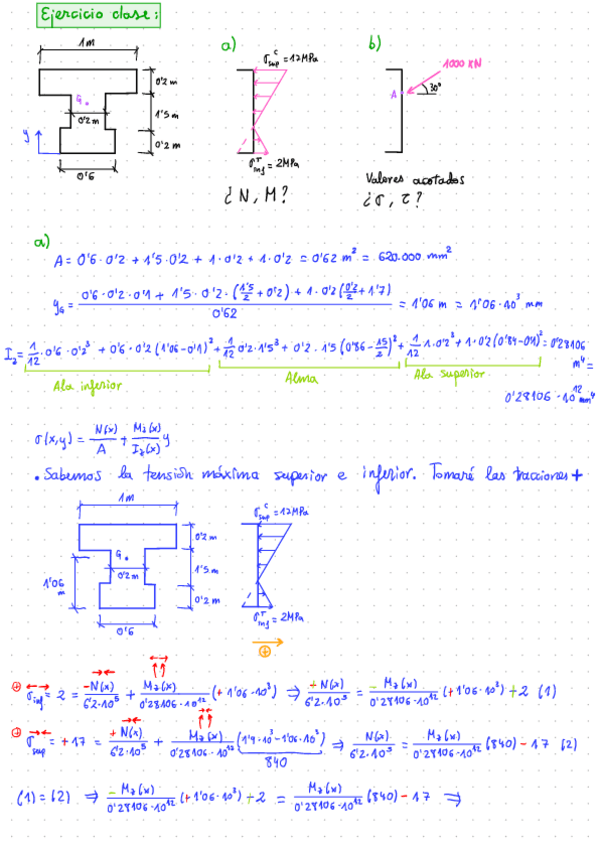 Ejercicio clase:
1m
a)
b)
σ sup C = 17MPa
1000 KN
0'2 m
G.
A
30º
1'5 m
0'2 m
y
0'2 m
σ inf T = 2MPa
0'6
¿N, M?
Valores acotados
¿σ, τ?
a)
A = 0'6·0'2 + 1'5·0'2 + 1·0'2 + 1·0'2 = 0'62 m² = 620.000 mm²
yG = (0'6·0'2·0'1 + 1'5·0'2·(1'5/2 + 0'2) + 1·0'2(0'2/2 + 1'7)) / 0'62 = 1'06 m = 1'06·10³ mm
Iz = 1/12·0'6·0'2³ + 0'6·0'2(1'06-0'1)² + 1/12 0'2·1'5³ + 0'2·1'5(0'86-1'5/2)² + 1/12 1·0'2³ + 1·0'2(0'84-0'1)² = 0'28106 m⁴ =
Ala inferior
Alma
Ala superior
0'28106·10¹² mm⁴
σ(x,y) = N(x)/A + Mz(x)/Iz(x) y
• Sabemos la tensión máxima superior e inferior. Tomaré las tracciones +
1m
σ sup C = 17MPa
0'2 m
G.
0'2 m
1'5 m
1'06 m
0'2 m
0'6
σ inf T = 2MPa
⊕
⊕ σ inf = 2 = -N(x)/6'2·10⁵ + Mz(x)/0'28106·10¹² (+1'06·10³) ⇒ -N(x)/6'2·10⁵ = -Mz(x)/0'28106·10¹² (+1'06·10³) +2 (1)
⊕ σ sup = +17 = +N(x)/6'2·10⁵ + Mz(x)/0'28106·10¹² (1'9·10³-1'06·10³) ⇒ N(x)/6'2·10⁵ = Mz(x)/0'28106·10¹² (840) - 17 (2)
840
(1) = (2) ⇒ -Mz(x)/0'28106·10¹² (+1'06·10³) +2 = Mz(x)/0'28106·10¹² (840) - 17 ⇒